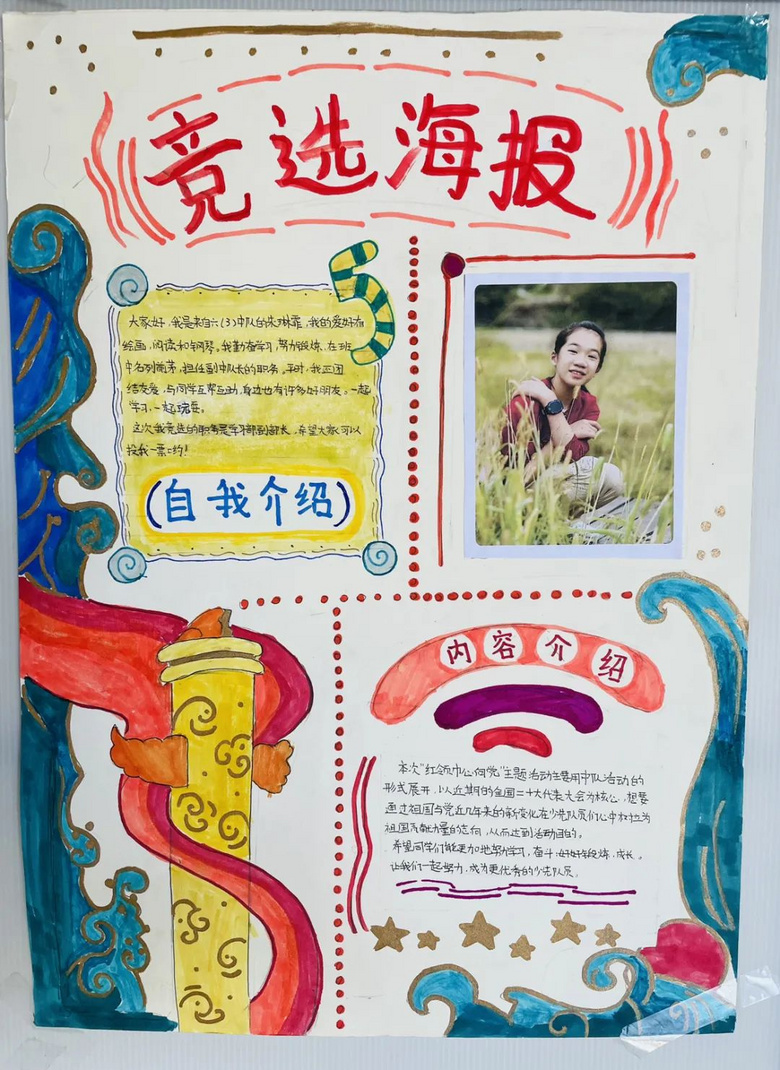 竞选海报
5
大家好，我是来自六（3）中队的朱琳霏，我的爱好有
绘画，阅读和钢琴。我勤奋学习，努力锻炼，在班
中名列前茅，担任副中队长的职务。平时，我团
结友爱，与同学互帮互助，身边也有许多好朋友。一起
学习，一起玩耍。
这次我竞选的职务是学习部副部长，希望大家可以
投我一票哟！
（自我介绍）
内容介绍
本次“红领巾心向党”主题活动主要用中队活动的
形式展开，以近期的全国二十大代表大会为核心，想要
通过祖国与党近几年来的新变化在少先队员们心中树立为
祖国贡献力量的志向，从而达到活动目的。
希望同学们能更加地努力学习，奋斗；好好锻炼，成长。
让我们一起努力，成为更优秀的少先队员。